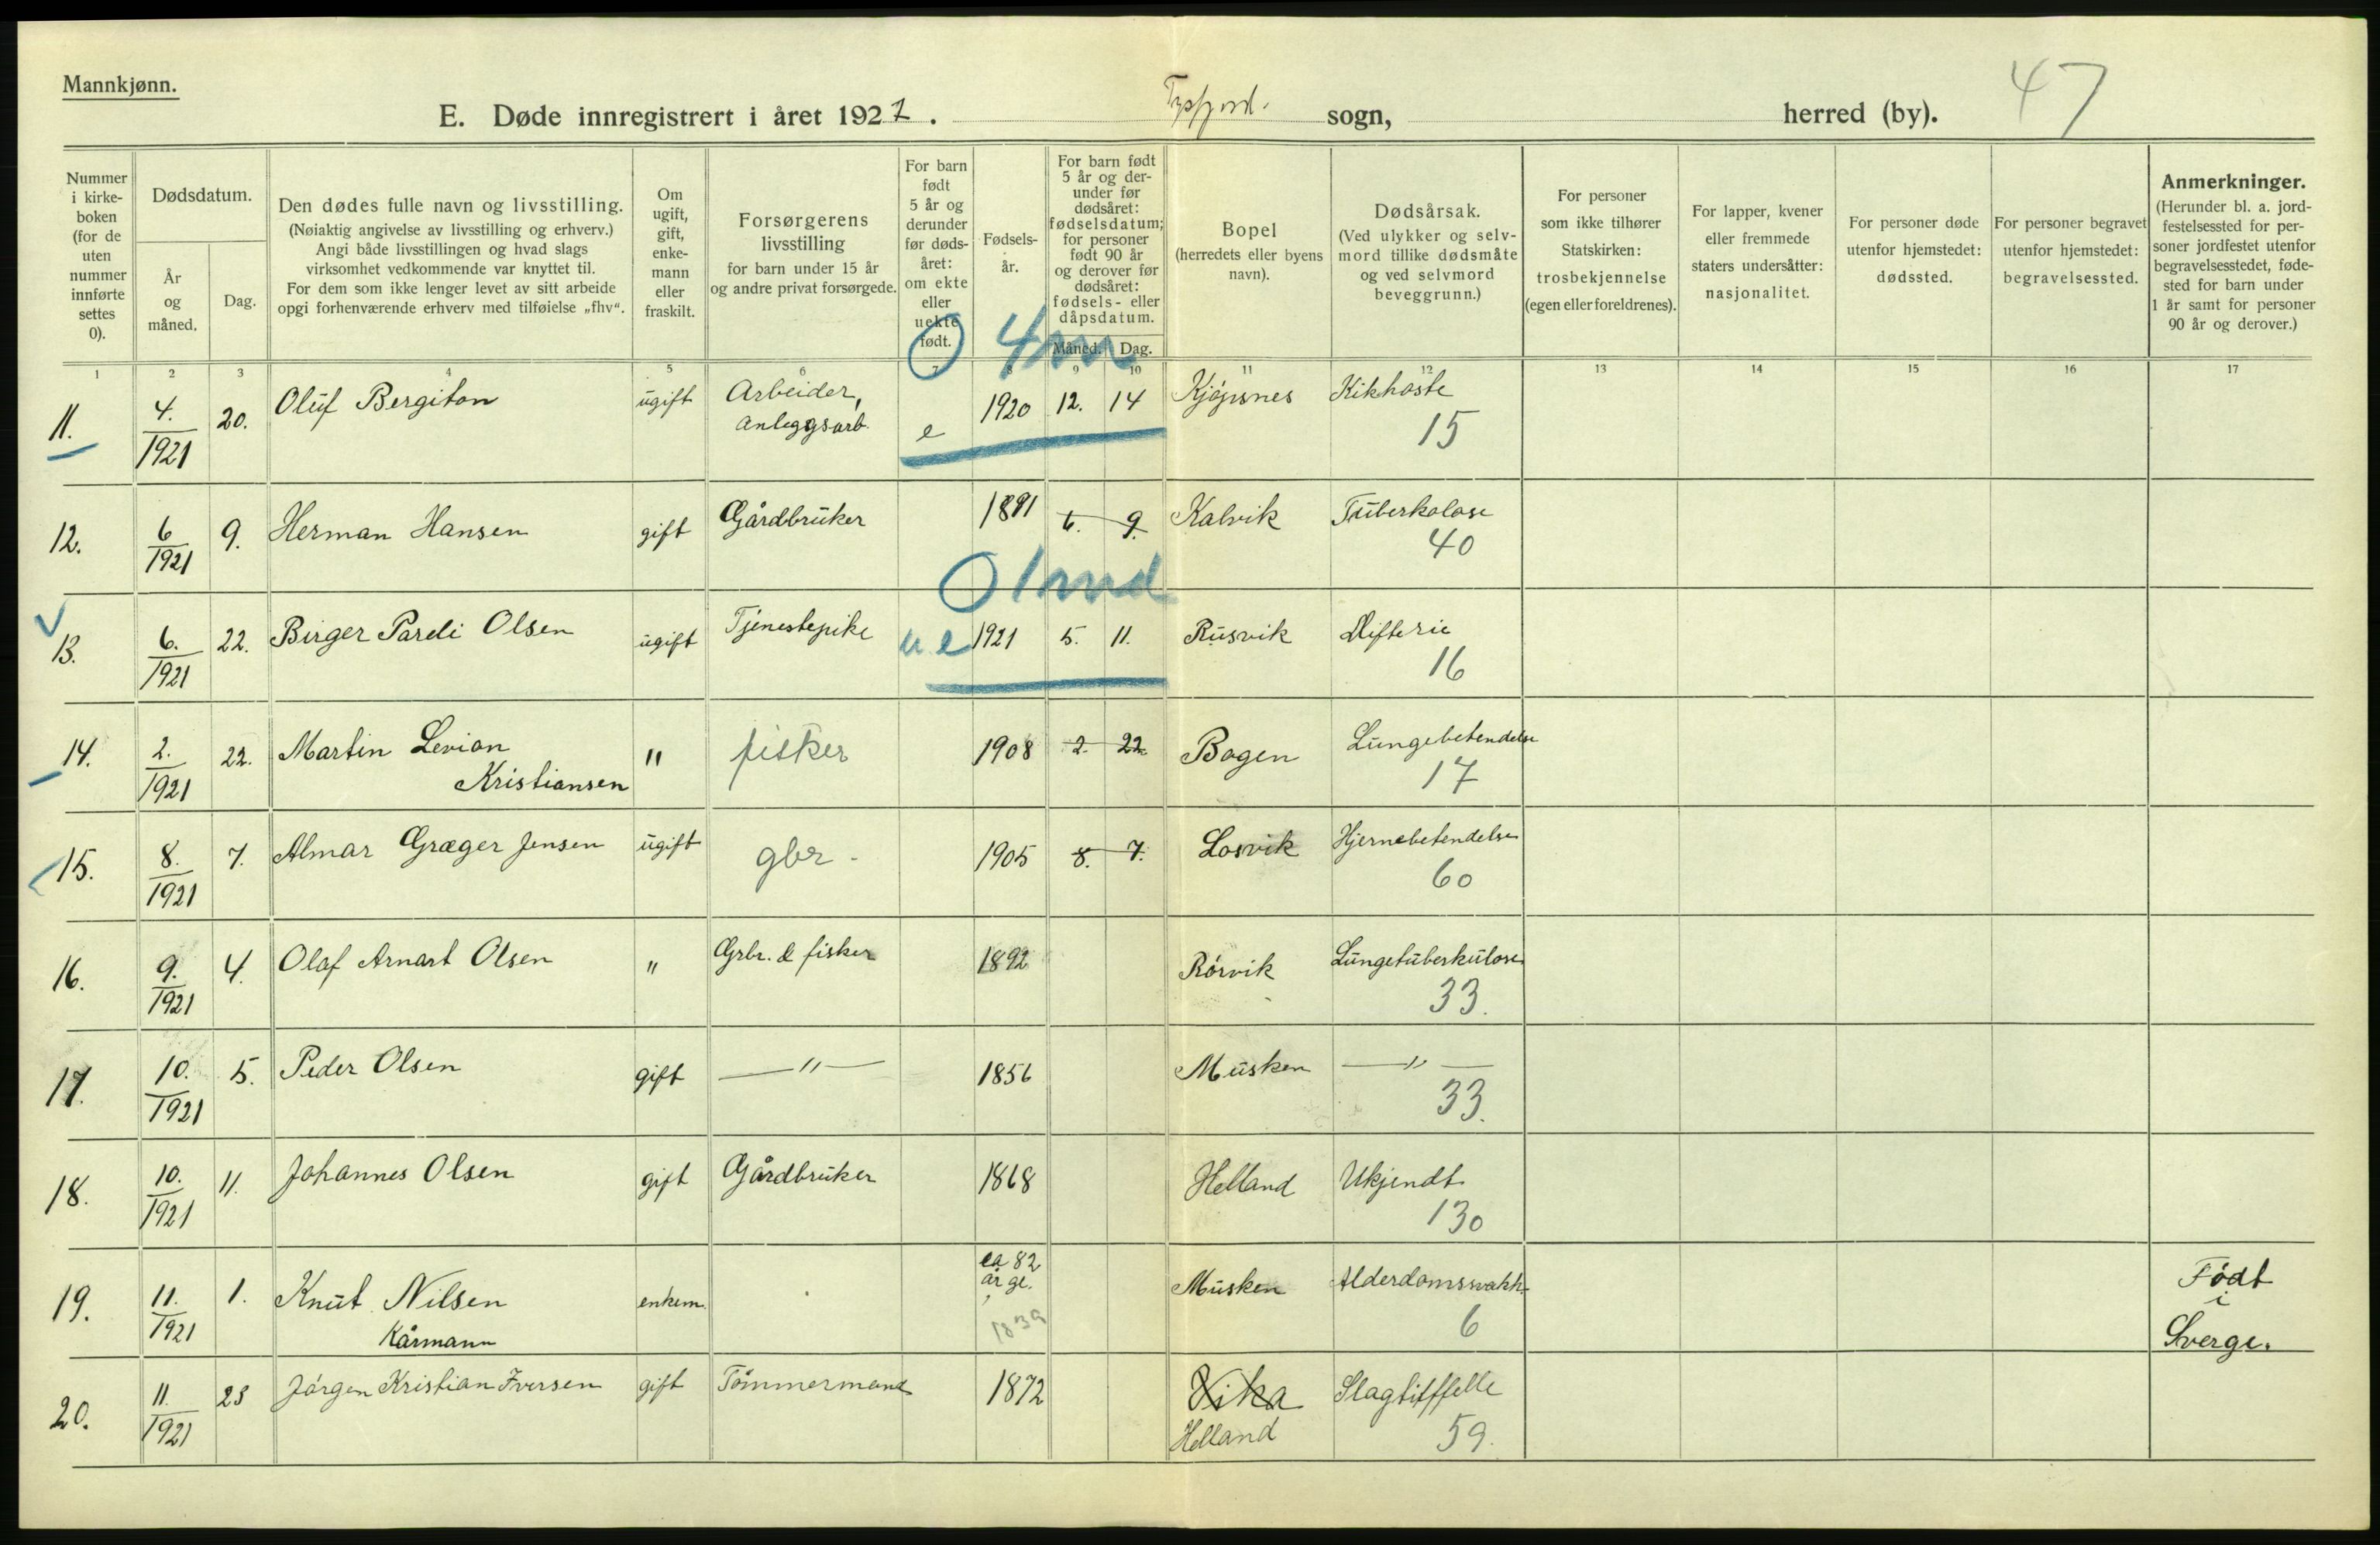 Mannkjønn.
E. Døde innregistrert i året 1921. Tysfjord. sogn, herred (by). 47
Nummer i kirkeboken (for de uten nummer innførte settes 0).
Dødsdatum.
År og måned.
Dag.
Den dødes fulle navn og livsstilling.
(Nøiaktig angivelse av livsstilling og erhverv.)
Angi både livsstillingen og hvad slags
virksomhet vedkommende var knyttet til.
For dem som ikke lenger levet av sitt arbeide
opgi forhenværende erhverv med tilføielse „fhv“.
Om ugift, gift, enkemann eller fraskilt.
Forsørgerens
livsstilling
for barn under 15 år
og andre privat forsørgede.
For barn født 5 år og derunder før dødsåret: om ekte eller uekte født.
Fødselsår.
For barn født 5 år og derunder før dødsåret: fødselsdatum; for personer født 90 år og derover før dødsåret: fødsels- eller dåpsdatum.
Måned. Dag.
Bopel
(herredets eller byens navn).
Dødsårsak.
(Ved ulykker og selvmord tillike dødsmåte og ved selvmord beveggrunn.)
For personer som ikke tilhører Statskirken: trosbekjennelse (egen eller foreldrenes).
For lapper, kvener eller fremmede staters undersåtter: nasjonalitet.
For personer døde utenfor hjemstedet: dødssted.
For personer begravet utenfor hjemstedet: begravelsessted.
Anmerkninger.
(Herunder bl. a. jordfestelsessted for personer jordfestet utenfor begravelsesstedet, fødested for barn under 1 år samt for personer 90 år og derover.)
1 2 3 4 5 6 7 8 9 10 11 12 13 14 15 16 17
0 4 m
11. 4. 1921 20. Oluf Bergiton ugift Arbeider, anleggsarb. e 1920 12. 14 Kjøpsnes Kikhoste 15
12. 6 1921 9. Herman Hansen gift Gårdbruker 1891 6. 9. Kalvik Tuberkolose 40
0 1 md
13. 6. 1921 22. Birger Pareli Olsen ugift Tjenestepike u e 1921 5. 11. Rusvik Difterie 16
14. 2. 1921 22. Martin Levion Kristiansen " fisker 1908 2. 22. Bogen Lungebetendelse 17
15. 8. 1921 7. Almar Græger Jensen ugift gbr. 1905 8. 7. Losvik Hjernebetendelse 60
16. 9. 1921 4. Olaf Arnart Olsen " Grbr. & fisker 1892 Rørvik Lungetuberkulose 33.
17. 10. 1921 5. Peder Olsen gift —"— 1856 Musken —"— 33.
18. 10. 1921 11. Johannes Olsen gift Gårdbruker 1868 Helland Ukjendt 130
19. 11. 1921 1. Knut Nilsen Kårmann enkem. ca 82 år gl. 1839 Musken Alderdomssvakh. 6 Født i Sverge.
20. 11. 1921 23 Jørgen Kristian Iversen gift Tømmermand 1872 Vika Helland Slagtilffelle 59.